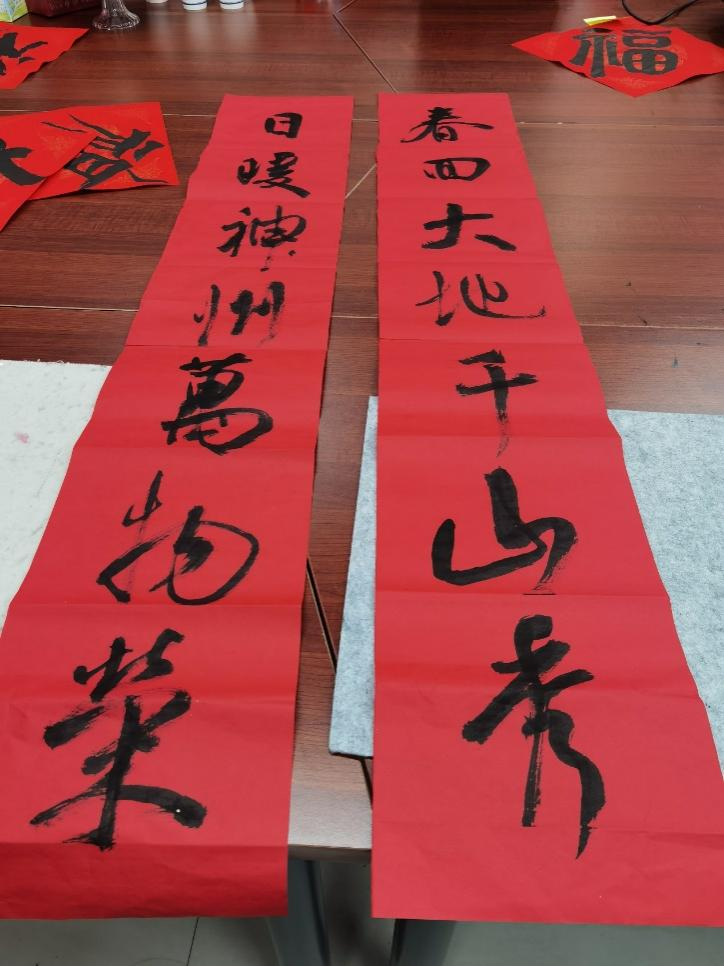 春回大地千山秀
日暖神州萬物榮
福